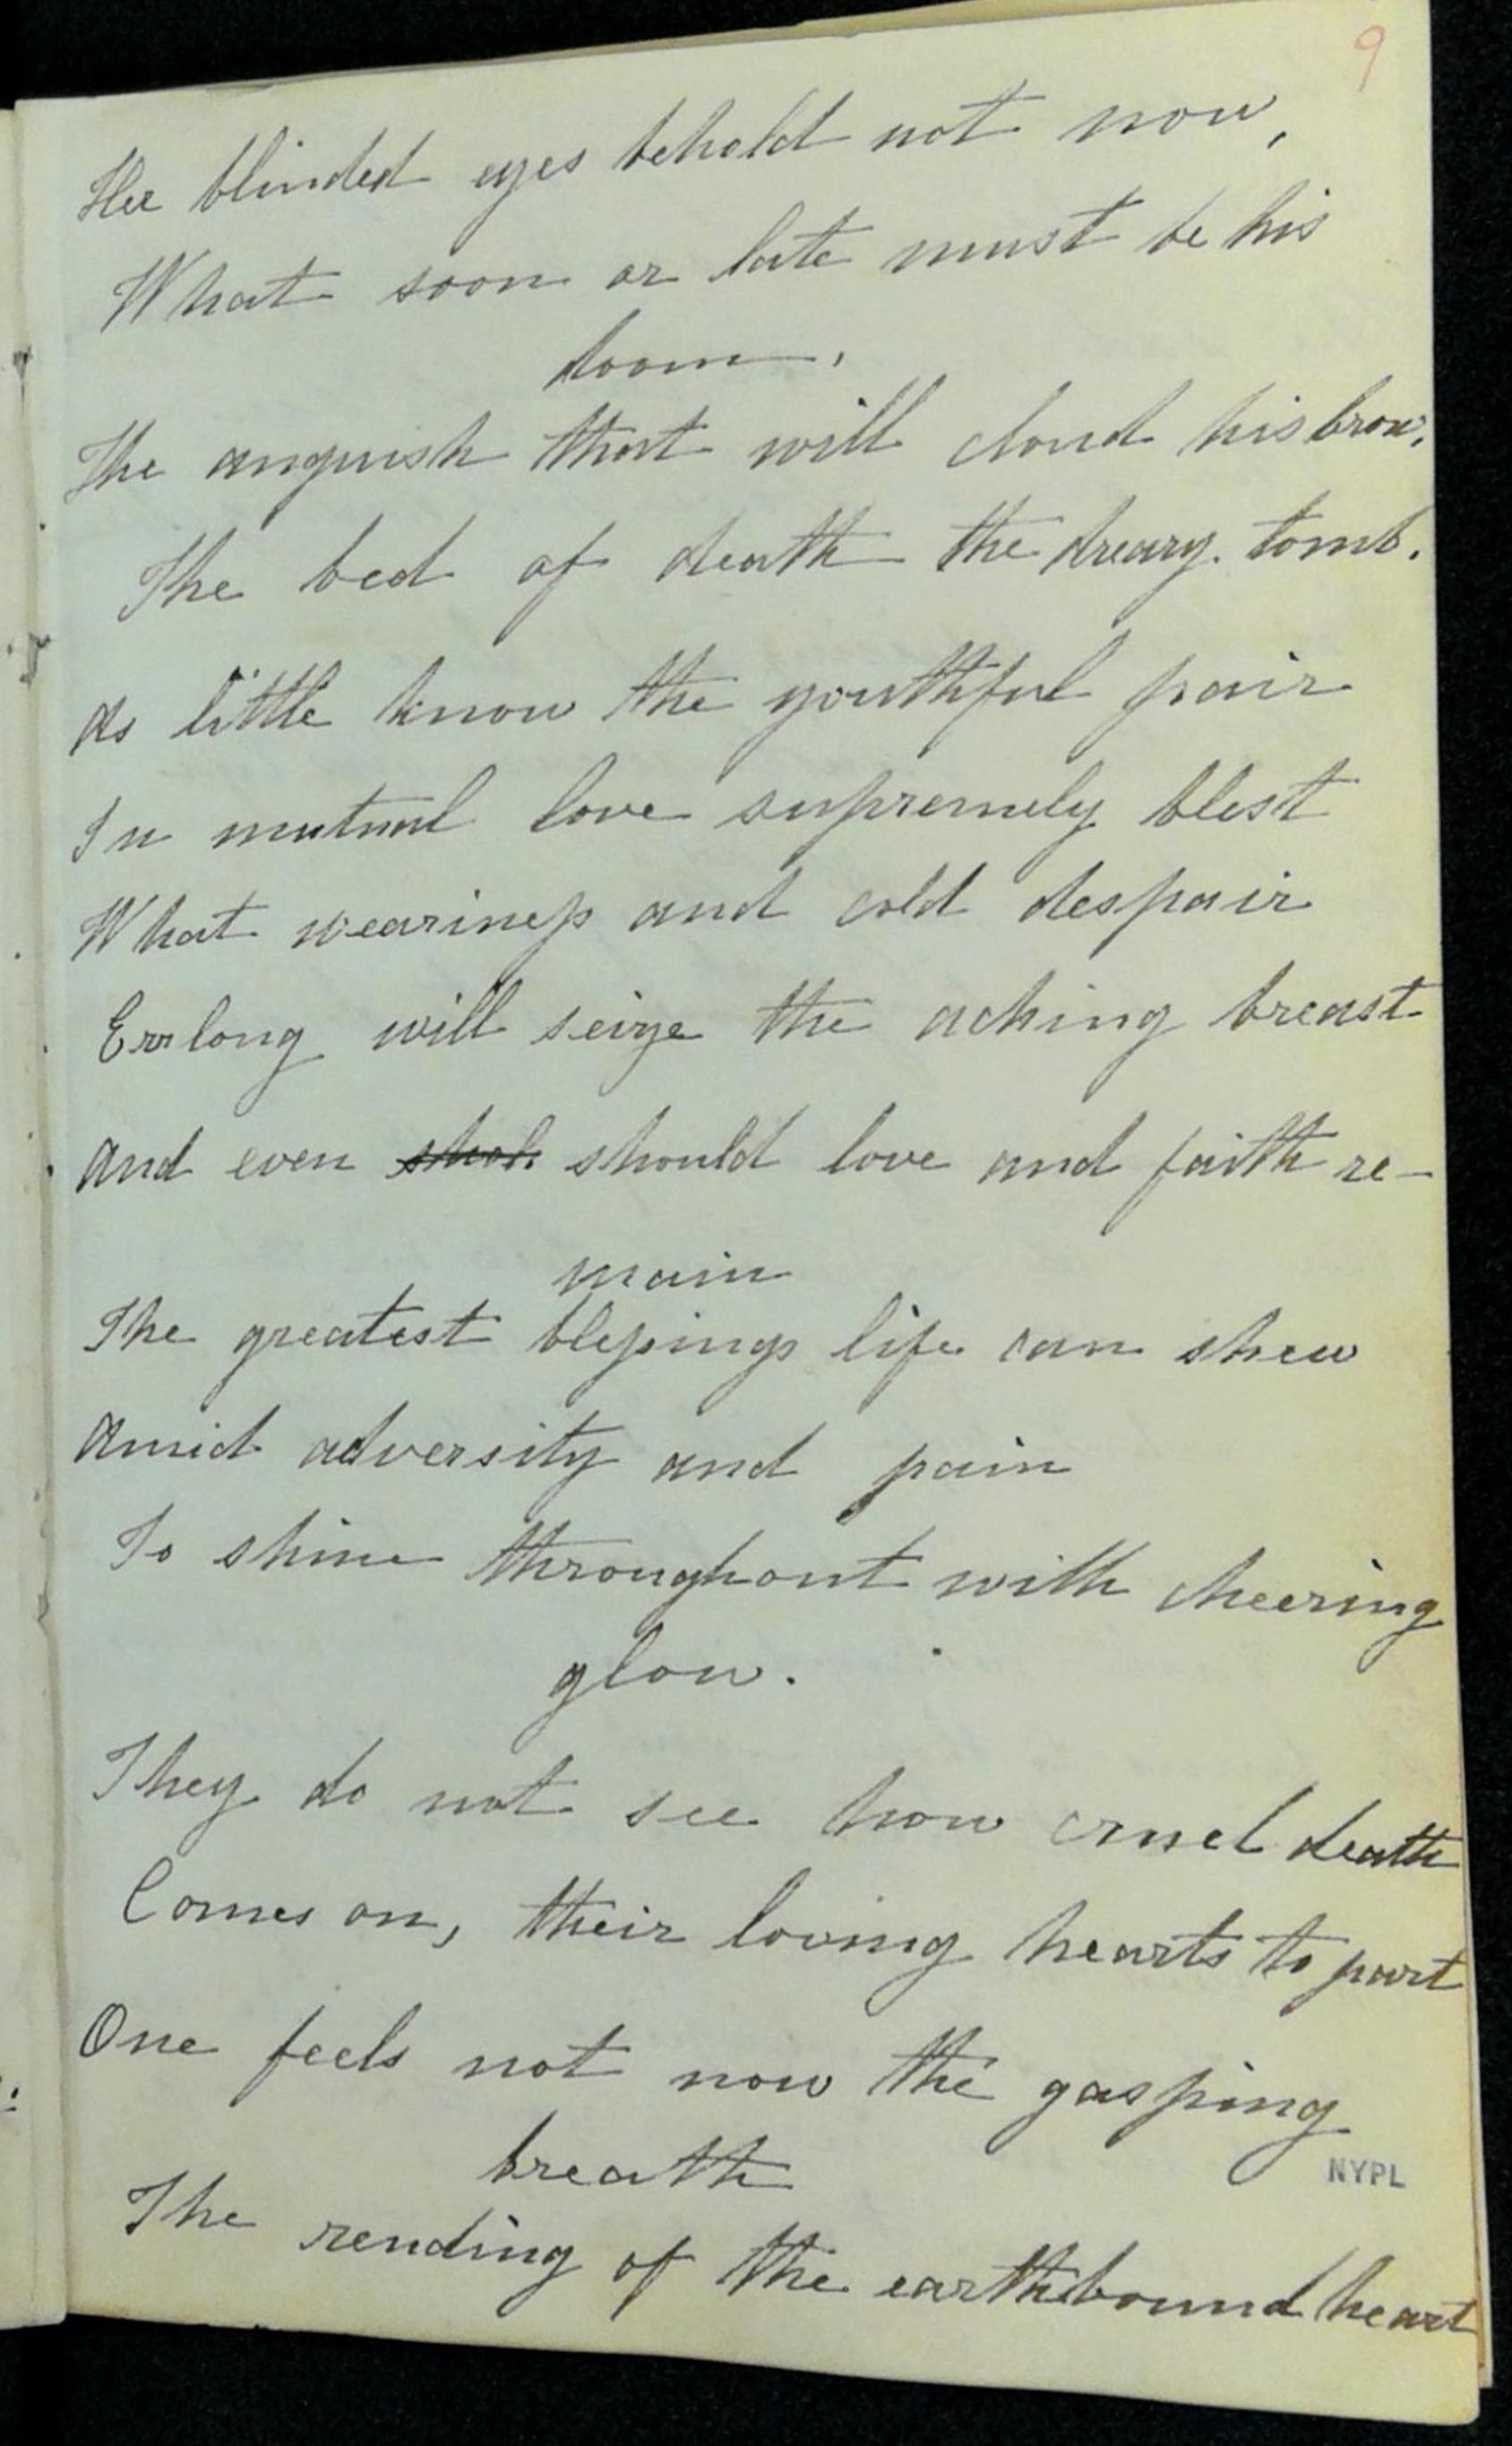 9
Her blinded eyes behold not now,
What soon or late must be his
doom,
The anguish that will cloud his brow,
The bed of death the dreary tomb.
As little know the youthful pair
In mutual love supremely blest
What weariness and cold despair
Errlong will seize the aching breast
And even should love and faith re-
main
The greatest blessings life can shew
Amid adversity and pain
To shine throughout with cheering
glow.
They do not see how cruel death
Comes on, their loving hearts to part
One feels not now the gasping
breath
NYPL
The rending of the earthbound heart